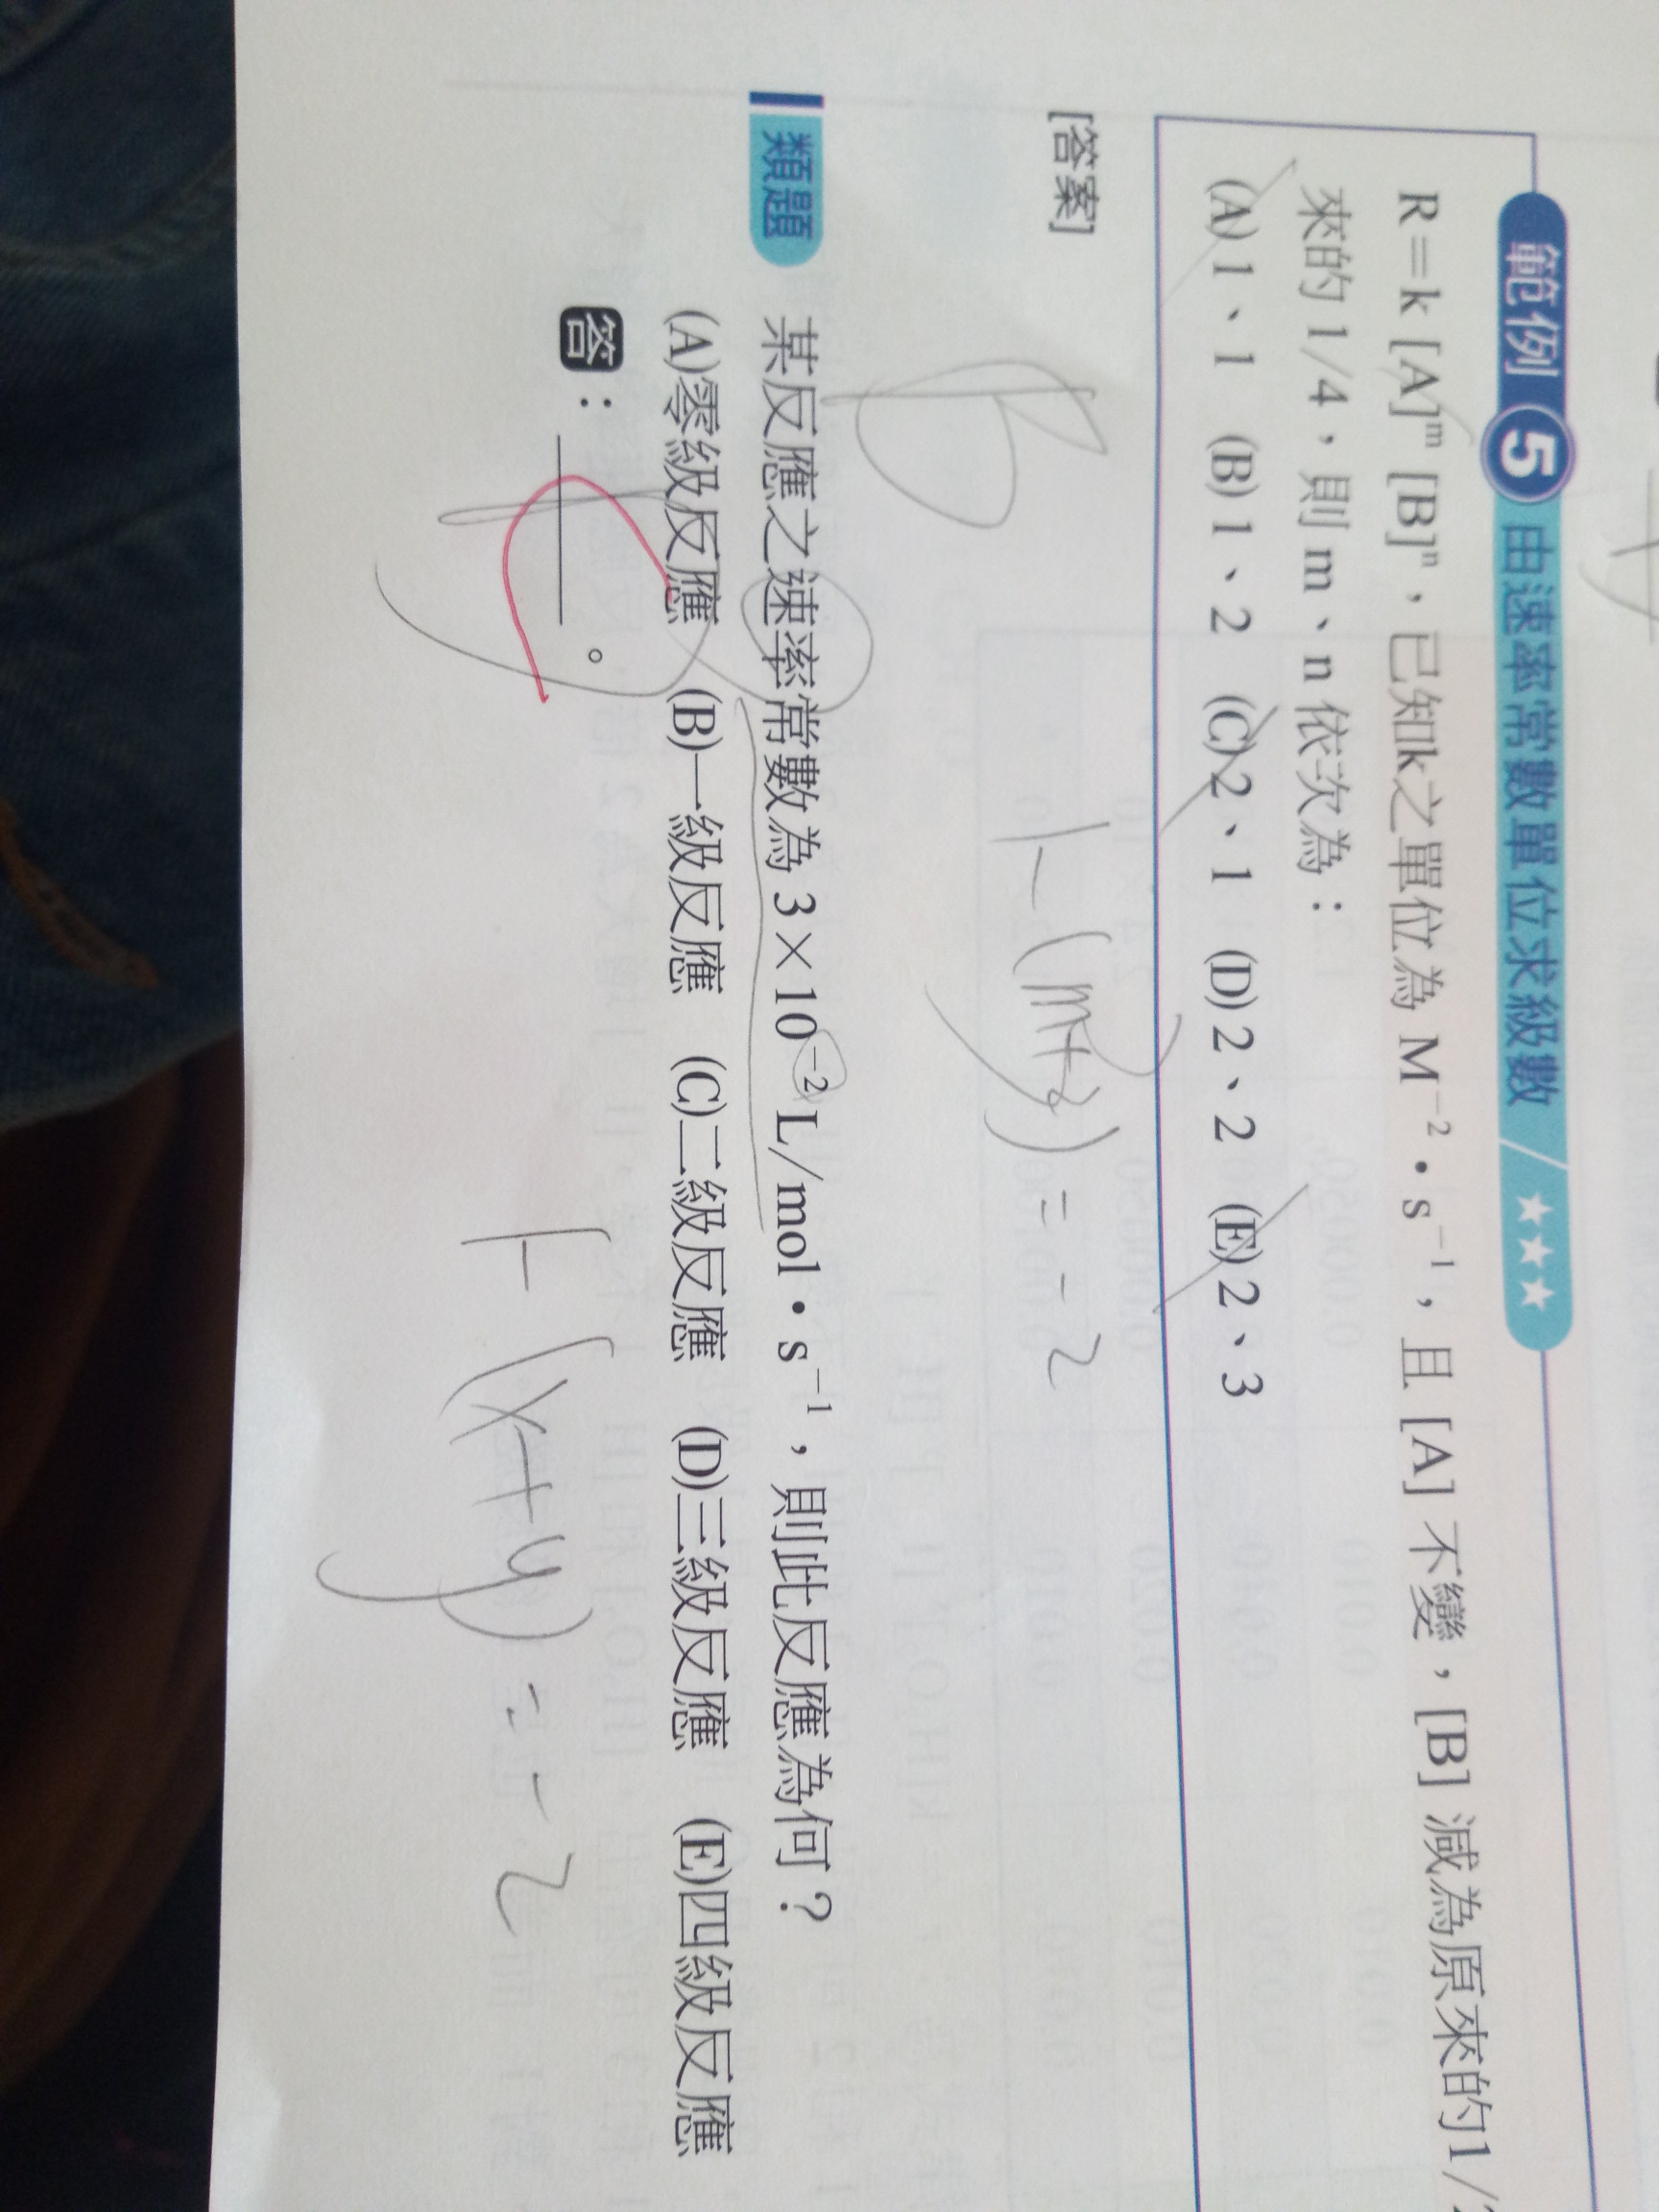 範例 5 由速率常數單位求級數 / ★★★
R=k [A]ᵐ [B]ⁿ,已知k之單位為 M⁻²·s⁻¹,且 [A] 不變,[B] 減為原來的1/
來的 1/4,則 m、n 依次為:
(A) 1、1 (B) 1、2 (C) 2、1 (D) 2、2 (E) 2、3
[答案]
B
1-(m+2) = -2
類題 某反應之速率常數為 3×10⁻² L/mol·s⁻¹,則此反應為何?
(A)零級反應 (B)一級反應 (C)二級反應 (D)三級反應 (E)四級反應
答: 。
1-(x+y) = -2